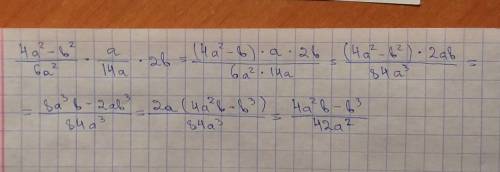 \frac{4a^2-b^2}{6a^2} \cdot \frac{a}{14a} \cdot 2b = \frac{(4a^2-b) \cdot a \cdot 2b}{6a^2 \cdot 14a} = \frac{(4a^2-b^2) \cdot 2ab}{84a^3} =
= \frac{8a^3b-2ab^3}{84a^3} = \frac{2a(4a^2b-b^3)}{84a^3} = \frac{4a^2b-b^3}{42a^2}